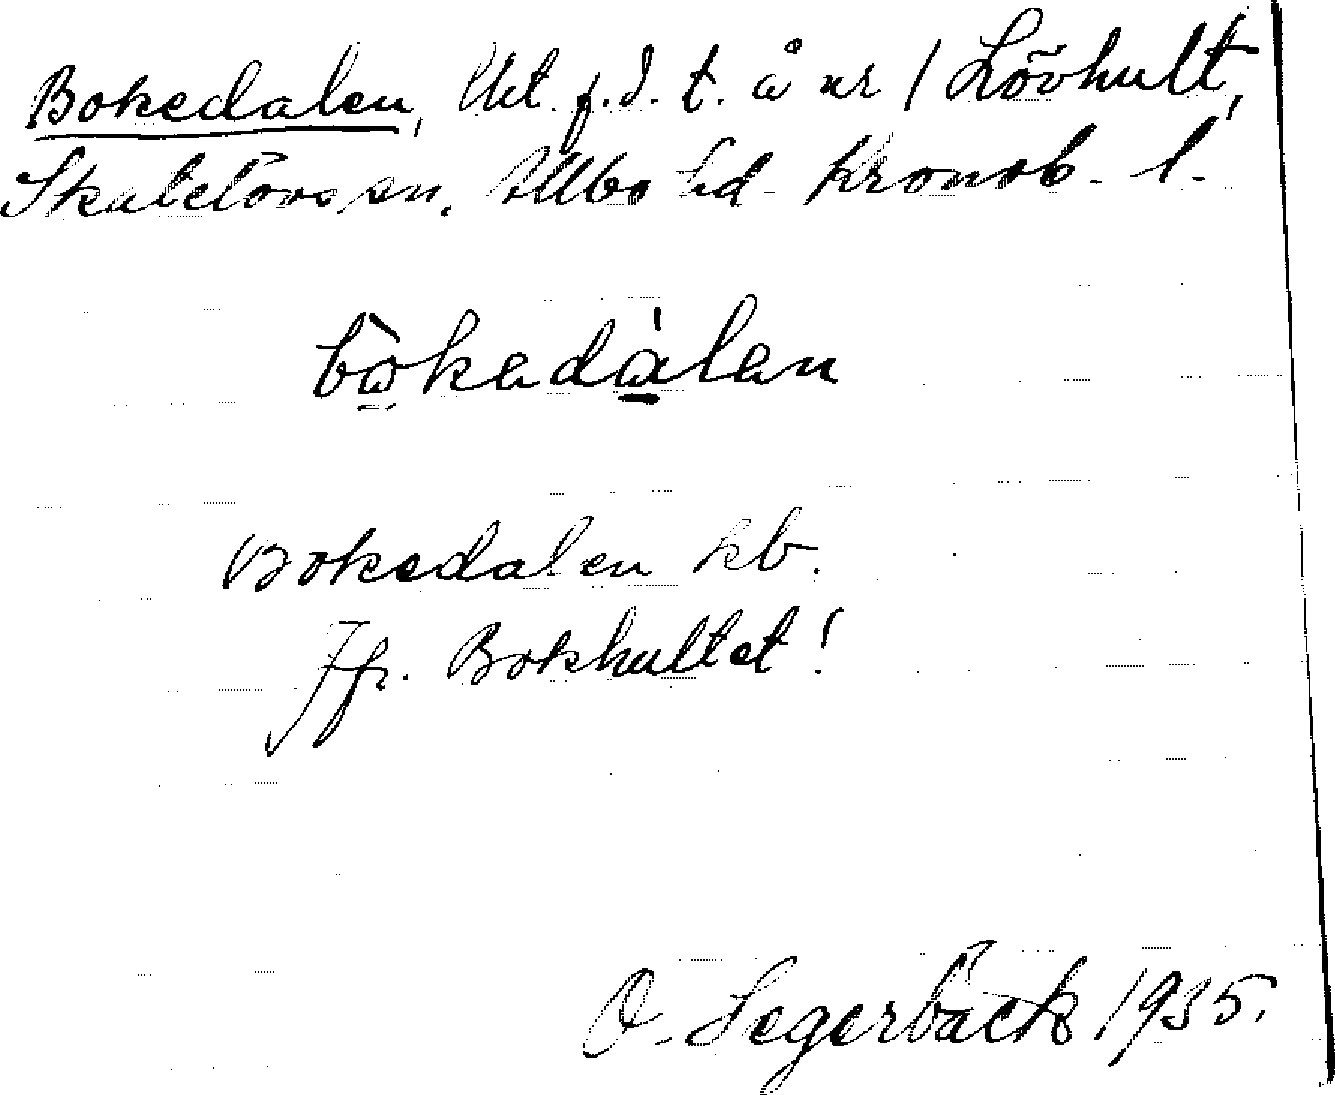 Bokedalen, Ukt. f.d. t. å nr 1 Lövhult,
Skatelövs sn. Allbo hd. Kronob. l.
bo̱kedàlen
Bokedalen kb.
Jfr. Bokhultet!
O. Segerbäck 1935.